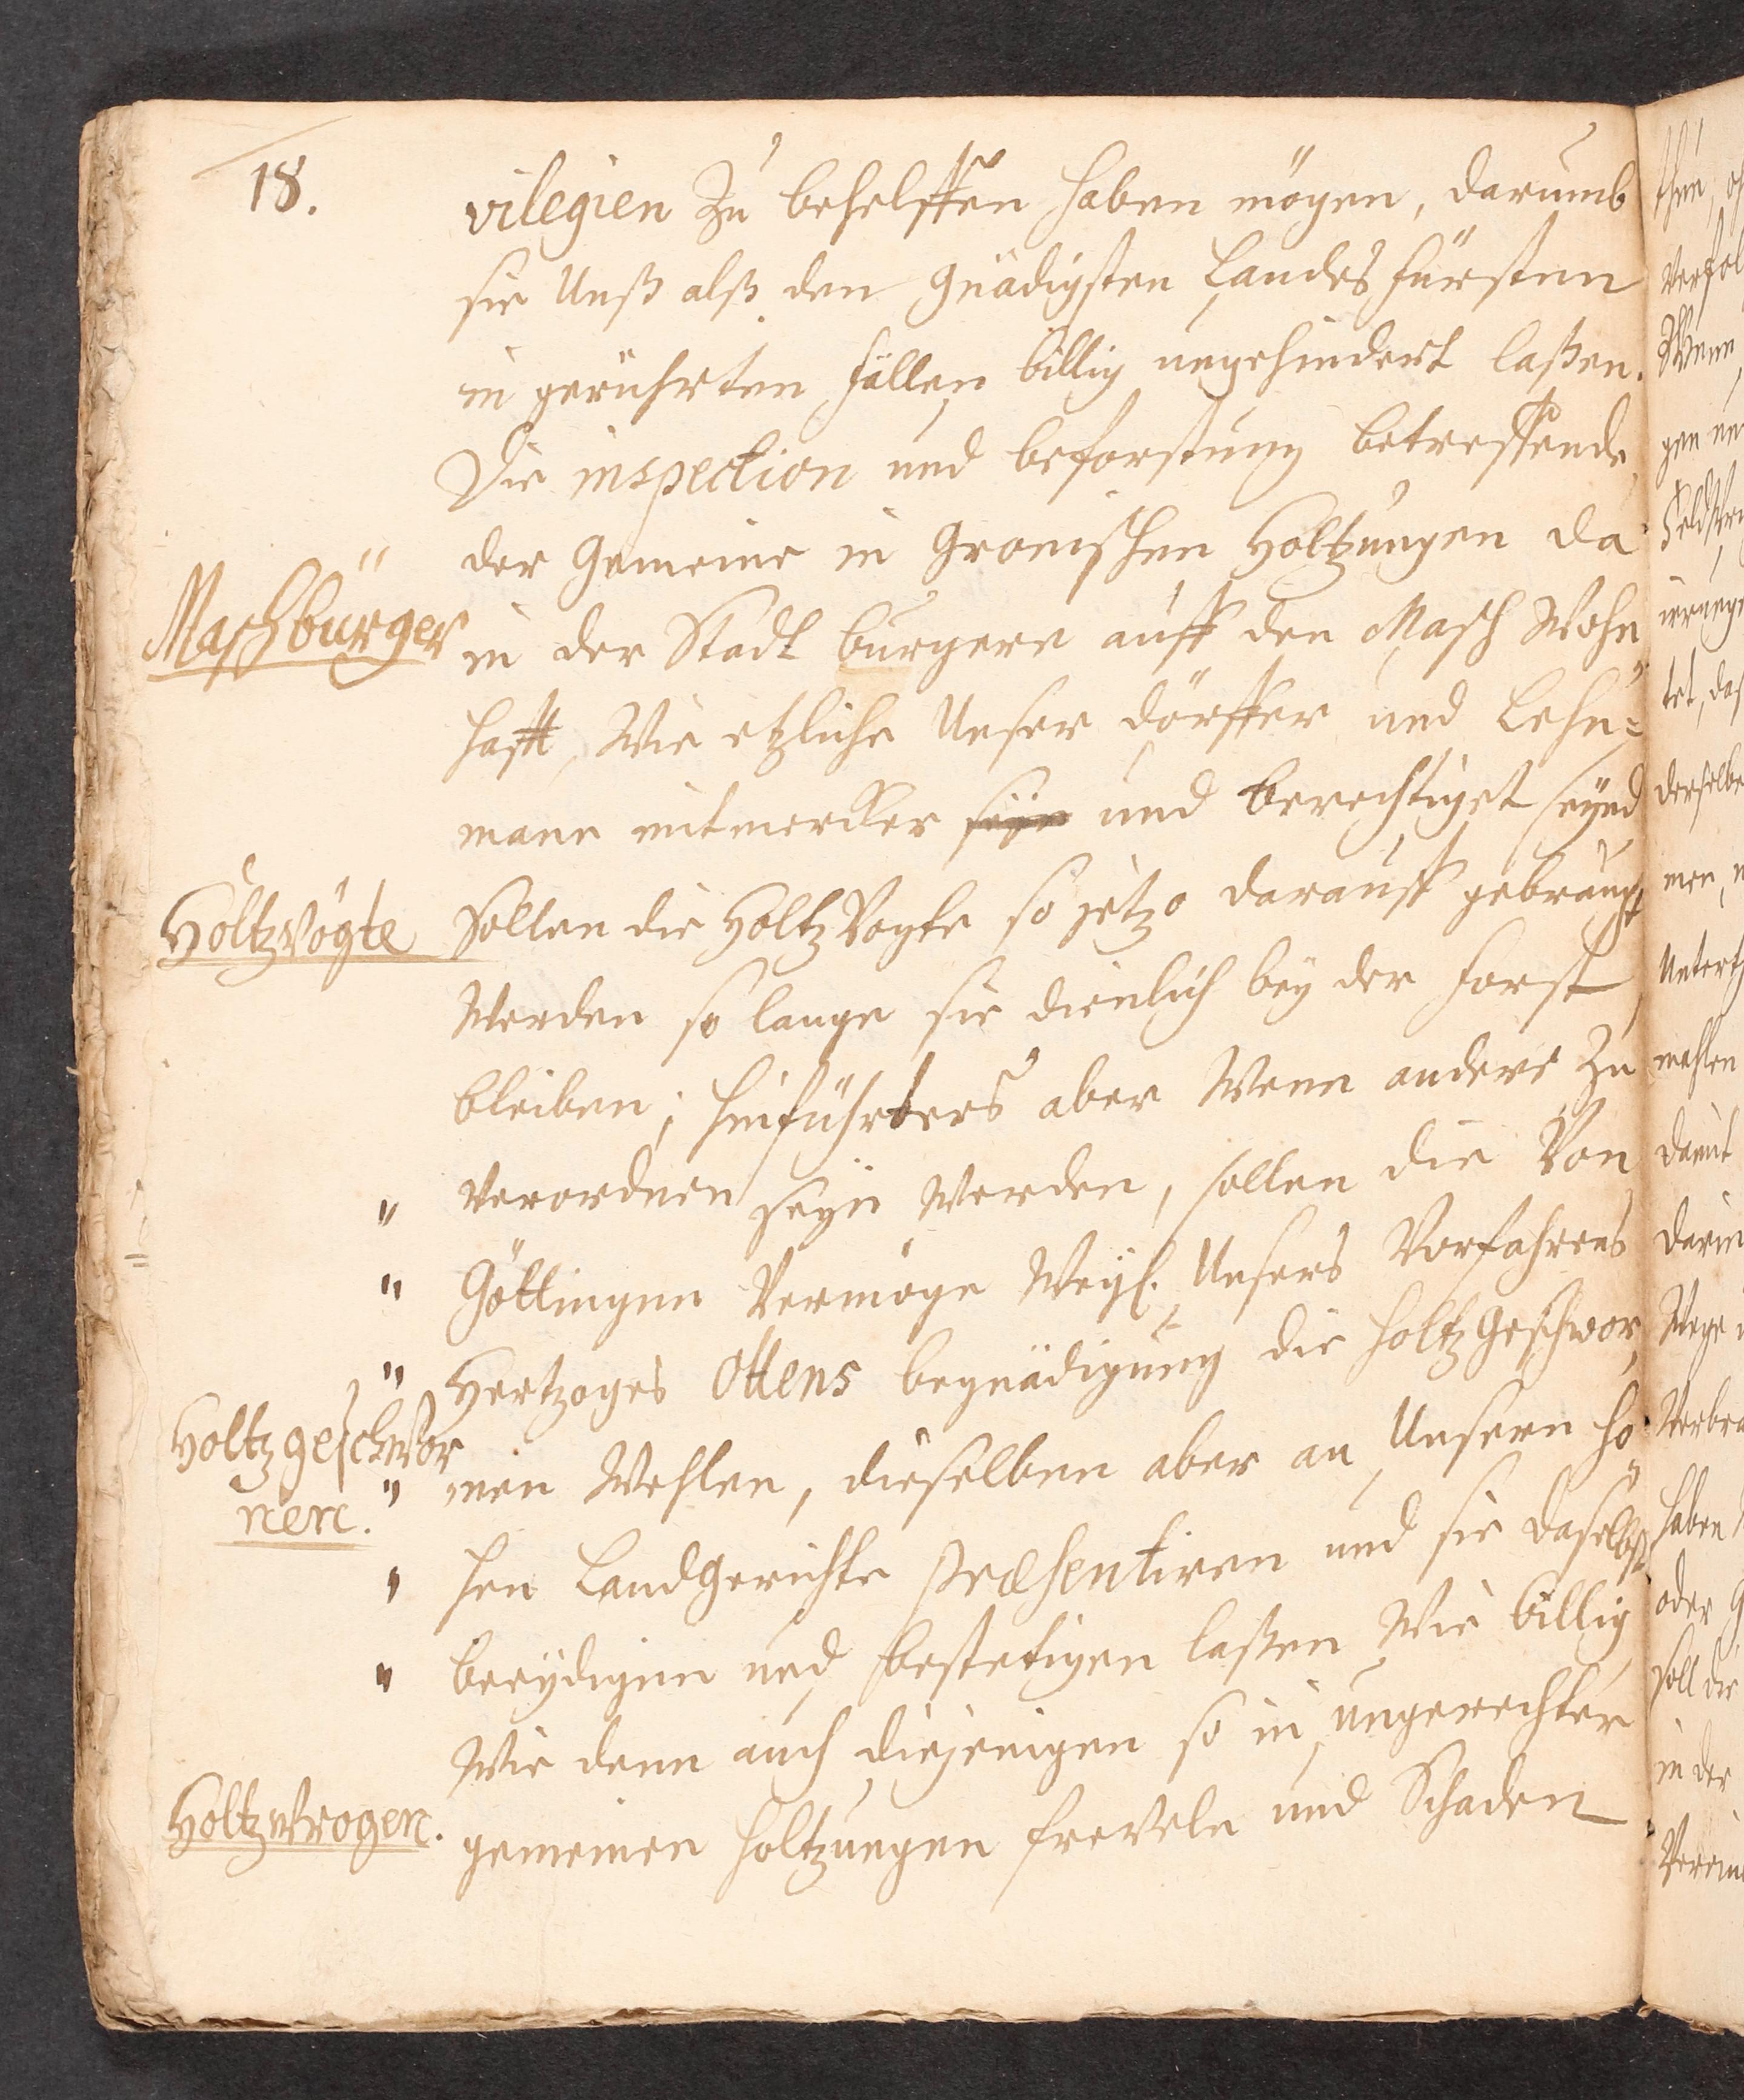 18.
vilegien zu behelffen haben mögen, darumb
sie Unß alß den Gnädigsten Landes fürsten
in gerührten fällen billig ungehindert laßen.
Die inspection und beforstung betreffende,
der Gemeine in Gronischen Holtzungen da
Maschbürger
in der Stadt burgere auff den Masch Wohn
hafft, Wie etzliche Unser dörffer und Lehn=
mann mitmercker seyn und berechtiget seynd
Holtzvögte
Sollen die Holtz Vogte so jetzo darauff gebraucht
Werden so lange sie dienlich bey der Forst
bleiben; hinführters aber Wenn andere zu
" verordnen seyn Werden, sollen die Von
" Göttingen Vermöge Weyl. Unsers Vorfahren
" Hertzoges Ottens begnädigung die Holtz Geschwor
Holtzgeschwor
nen.
" nen Wehlen, dieselben aber an Unsern ho
" hen Landgerichte præsentiren und sie daselbst
" beeydigen und bestetigen laßen Wie billig
Wie denn auch diejenigen so in ungerechter
Holtzwrogen.
gemeinen Holtzungen freveln und Schaden